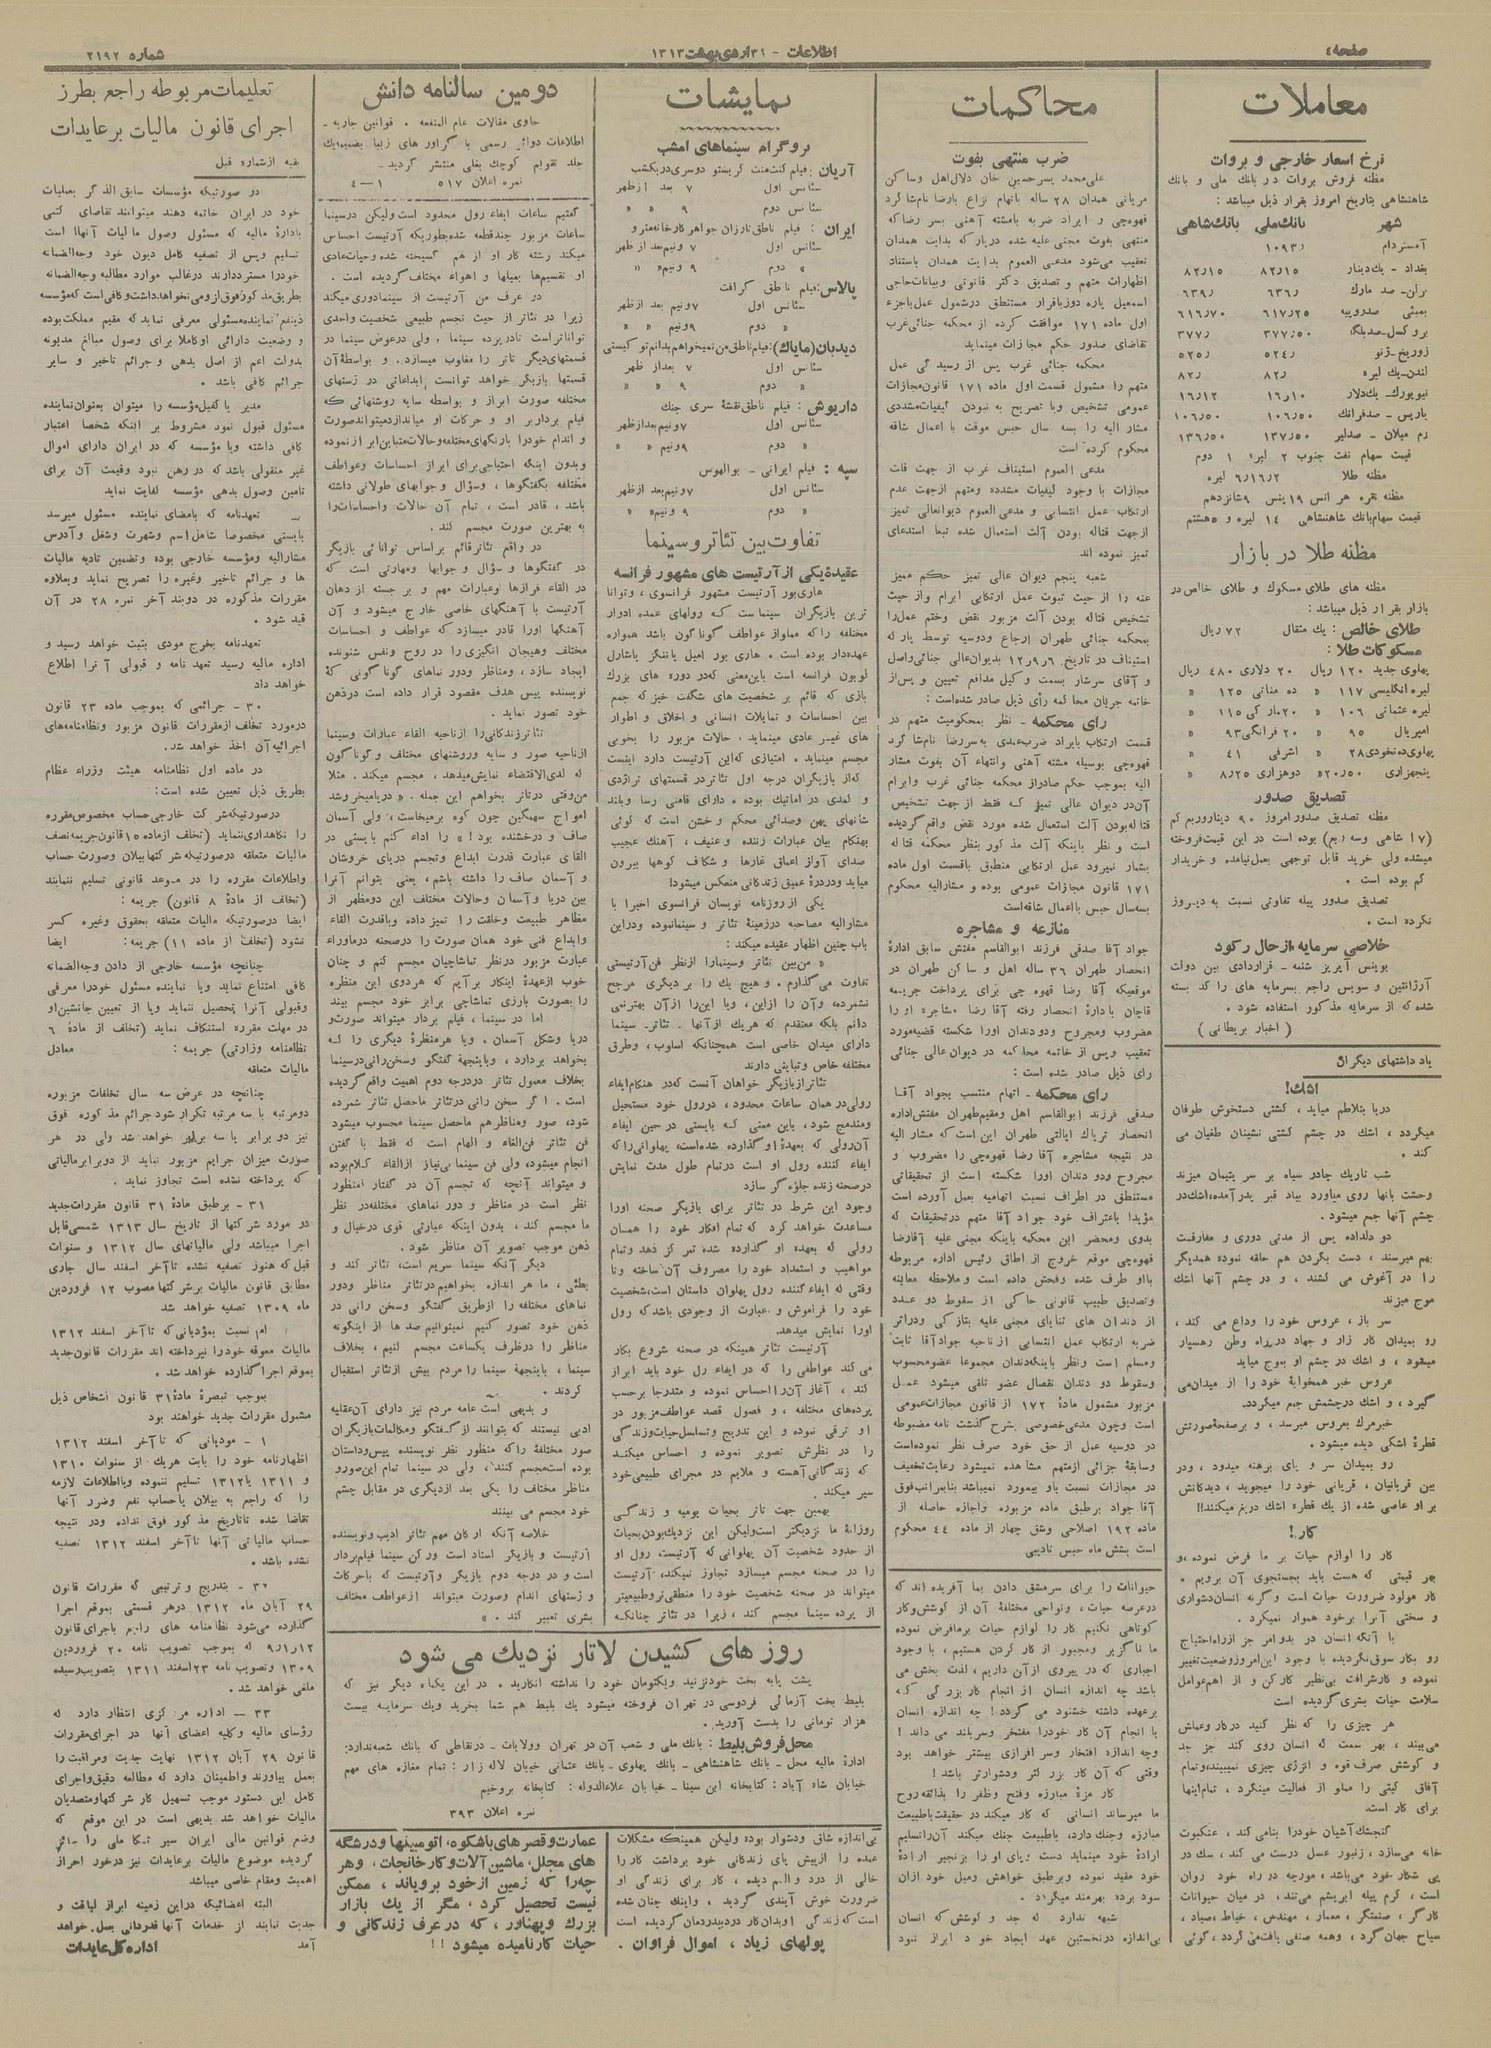 صفحه ٤
اطلاعات - ٣١ اردی‌بهشت ١٣١٣
شماره ٢١٩٢
معاملات
نرخ اسعار خارجی و بروات
مظنه فروش بروات در بانك ملی و بانك
شاهنشاهی بتاریخ امروز بقرار ذیل میباشد :
شهر بانك‌ملی بانك‌شاهی
آمستردام ١٠٩٣٫
بغداد - يك‌دینار ٨٢٫١٥ ٨٢٫١٥
برلن - صد مارك ٦٣٦٫ ٦٣٩٫
بمبئی صدروپیه ٦١٧٫٢٥ ٦١٦٫٧٠
بروکسل-صدبلگا ٣٧٧٫٥٠ ٣٧٧٫
زوریخ-ژنو ٥٢٤٫ ٥٢٥٫
لندن-يك لیره ٨٢٫ ٨٢٫
نیویورك-يك‌دلار ١٦٫١٠ ١٦٫١٢
پاریس-صدفرانك ١٠٦٫٥٠ ١٠٦٫٥٠
رم میلان - صدلیر ١٣٧٫٥٠ ١٣٦٫٥٠
قیمت سهام نفت جنوب ٢ لیره ١ دوم
مظنه طلا ٦٫١٦٫٢ لیره
مظنه نقره هر انس ١٩ پنس ٩ شانزدهم
قیمت سهام‌بانك شاهنشاهی ١٤ لیره و ٥ هشتم
مظنه طلا در بازار
مظنه های طلای مسکوك و طلای خالص در
بازار بقرار ذیل میباشد :
طلای خالص : يك مثقال ٧٢ ریال
مسکوکات طلا :
پهلوی جدید ١٢٠ ریال ٢٠ دلاری ٤٨٠ ریال
لیره انگلیسی ١١٧ « ده مناتی ١٢٥ «
لیره عثمانی ١٠٦ « ٢٠ مارکی ١١٥ «
امپریال ٩٥ « ٢٠ فرانکی ٩٣ «
پهلوی‌ده‌نخودی ٢٨ « اشرفی ٤١ «
پنجهزاری ٢٠٫٥٠ « دوهزاری ٨٫٢٥ «
تصدیق صدور
مظنه تصدیق صدور امروز ٩٠ دیناروربع کم
(١٧ شاهی وسه ربع) بوده است در این قیمت‌فروخته
میشده ولی خرید قابل توجهی بعمل‌نیامده و خریدار
کم بوده است .
تصدیق صدور پیله تفاوتی نسبت به دیروز
نکرده است .
خلاصی سرمایه ازحال رکود
بوینس آیریز شنبه - قراردادی بین دولت
آرژانتین و سویس راجع بسرمایه های را کد بسته
شده که از سرمایه مذکور استفاده شود .
( اخبار بریطانی )
یاد داشتهای دیگران
اشك!
دریا بتلاطم میاید ، کشتی دستخوش طوفان
میگردد ، اشك در چشم کشتی نشینان طغیان می
کند .
شب تاريك چادر سیاه بر سر یتیمان میزند
وحشت بانها روی میاورد بیاد قبر پدرآمده،اشك‌در
چشم آنها جمع میشود.
دو دلداده پس از مدتی دوری و مفارقت
بهم میرسند ، دست بگردن هم حلقه نموده همدیگر
را در آغوش می کشند ، و در چشم آنها اشك
موج میزند
سر باز ، عروس خود را وداع می کند ،
رو بمیدان کار زار و جهاد درراه وطن رهسپار
میشود ، و اشك در چشم او بموج میاید
عروس خبر همخوابهٔ خود را از میدان‌می
گیرد ، و اشك درچشمش جمع میگردد.
خبرمرك بعروس میرسد ، و برصفحهٔ‌صورتش
قطرهٔ اشکی دیده میشود .
رو بمیدان سر و پای برهنه میدود ، ودر
بین قربانیان ، قربانی خود را میجوید ، دیدگانش
بر او عاصی شده از يك قطره اشك دریغ میکنند!!
کار!
کار را لوازم حیات بر ما فرض نموده،و
بهر قیمتی که هست باید بجستجوی آن برویم .
کار مولود ضرورت حیات است و گرنه انسان‌دشواری
و سختی آنرا برخود هموار نمیکرد .
با آنکه انسان در بدوامر جز ازراه‌احتیاج
رو بکار سوق‌نگردیده با وجود این‌امروزوضعیت‌تغییر
نموده و کارشرافت بی‌نظیر کارکن و از اهم‌عوامل
سلامت حیات بشری‌گردیده است
هر چیزی را که نظر کنید درکاروعملش
می‌بیند ، بهر سمت که انسان روی کند جز جد
و کوشش صرف قوه و انرژی چیزی نمیبیند،وتمام
آفاق گیتی را مملو از فعالیت مینگرد ، تمام‌اینها
برای کار است.
گنجشك‌آشیان خودرا بنامی کند ، عنکبوت
خانه می‌سازد ، زنبور عسل درست می کند ، سك در
پی شکار خود می‌باشد ، مورچه در راه خود روان
است ، کرم پیله ابریشم می‌تند ، در میان حیوانات
کارگر ، صنعتگر ، معمار ، مهندس ، خیاط ، صیاد ،
سیاح جهان گرد ، وهمه صنفی یافت‌می گردد ، گوئی
محاکمات
ضرب منتهی بفوت
علی‌محمد پسرحسین خان دلال‌اهل وساکن
مریانی همدان ٢٨ ساله باتهام نزاع بارضا نام‌شاگرد
قهوه‌چی و ایراد ضربه بامشته آهنی بسر رضاکه
منتهی بفوت مجنی علیه شده درپارکه بدایت همدان
تعقیب می‌شود مدعی العموم بدایت همدان باستناد
اظهارات متهم و تصدیق دکتر قانونی و بیانات‌حاجی
اسمعیل پاره دوزباقرار مستنطق درشمول عمل‌باجزء
اول ماده ١٧١ موافقت کرده از محکمه جنائی‌غرب
تقاضای صدور حکم مجازات مینماید
محکمه جنائی غرب پس از رسید گی عمل
متهم را مشمول قسمت اول ماده ١٧١ قانون‌مجازات
عمومی تشخیص وبا تصریح به نبودن کیفیات‌مشددی
مشار الیه را بسه سال حبس موقت با اعمال شاقه
محکوم کرده است
مدعی العموم استیناف غرب از جهت قلت
مجازات با وجود کیفیات مشدده ومتهم ازجهت عدم
ارتکاب عمل انتسابی و مدعی العموم دیوانعالی تمیز
ازجهت قتاله بودن آلت استعمال شده تبعا استدعای
تمیز نموده اند
شعبه پنجم دیوان عالی تمیز حکم ممیز
عنه را از حیث ثبوت عمل ارتکابی ابرام واز حیث
تشخیص قتاله بودن آلت مزبور نقض وختم عمل‌را
بمحکمه جنائی طهران ارجاع ودوسیه توسط پارکه
استیناف در تاریخ ١٢٫٩٫٦ بدیوان‌عالی جنائی‌واصل
و آقای سرشار بسمت وکیل مدافع تعیین و پس‌از
خاتمه جریان محاکمه رأی ذیل صادر شده‌است :
رای محکمه - نظر بمحکومیت متهم در
قسمت ارتکاب بایراد ضرب‌عمدی به‌سررضا نام‌شاگرد
قهوه‌چی بوسیله مشته آهنی وانتهاء آن بفوت مشار
الیه بموجب حکم صادراز محکمه جنائی غرب وابرام
آن‌در دیوان عالی تمیز که فقط از جهت تشخیص
قتاله‌بودن آلت استعمال شده مورد نقض واقع‌گردیده
است و نظر باینکه آلت مذکور بنظر محکمه قتاله
بشمار نمیرود عمل ارتکابی منطبق باقسمت اول ماده
١٧١ قانون مجازات عمومی بوده و مشارالیه محکوم
بسه‌سال حبس بااعمال شاقه‌است
منازعه و مشاجره
جواد آقا صدقی فرزند ابوالقاسم مفتش سابق ادارهٔ
انحصار طهران ٣٦ ساله اهل و ساکن طهران در
موقعیکه آقا رضا قهوه چی برای پرداخت جریمه
قاچاق بادارهٔ انحصار رفته آقا رضا مشاجره او را
مضروب و مجروح ودودندان اورا شکسته قضیه‌مورد
تعقیب وپس از خاتمه محاکمه در دیوان عالی جنائی
رای ذیل صادر شده است :
رای محکمه - اتهام منتسب بجواد آقا
صدقی فرزند ابوالقاسم اهل ومقیم‌طهران مفتش‌اداره
انحصار تریاك ایالتی طهران این است‌که مشار الیه
در نتیجه مشاجره آقا رضا قهوه‌چی را مضروب و
مجروح ودودندان اورا شکسته است از تحقیقاتی
مستنطق در اطراف نسبت اتهامیه بعمل آورده است
مؤیدا باعتراف خود جواد آقا متهم درتحقیقات که
بدوی ومحضر این محکمه باینکه مجنی علیه آقارضا
قهوه‌چی موقع خروج از اطاق رئیس اداره مربوطه
بااو طرف شده وفحش داده است و ملاحظه معاینه
وتصدیق طبیب قانونی حاکی از سقوط دو عدد
از دندان های ثنایای مجنی علیه بتازکی ودراثر
ضربه ارتکاب عمل انتسابی ازناحیه جوادآقا ثابت
ومسلم است ونظر باینکه‌دندان مجموعا عضومحسوب
وسقوط دو دندان نقصان عضو تلقی میشود عمل
مزبور مشمول مادهٔ ١٧٢ از قانون مجازات‌عمومی
است وچون مدعی‌خصوصی بشرح گذشت نامه مضبوطه
در دوسیه عمل از حق خود صرف نظر نموده‌است
وسابقهٔ جزائی ازمتهم مشاهده نمیشود رعایت‌تخفیف
در مجازات نسبت باو بیمورد نمیباشد بنابراتب‌فوق
آقا جواد برطبق ماده مزبوره واجازه حاصله از
ماده ١٩٢ اصلاحی وشق چهار از ماده ٤٤ محکوم
است بشش ماه حبس تادیبی
حیوانات را برای سرمشق دادن بما آفریده اند که
درعرصه حیات ، ونواحی مختلفهٔ آن از کوشش‌وکار
کوتاهی نکنیم کار را لوازم حیات برمافرض نموده
ما ناگزیر ومجبور از کار کردن هستیم ، با وجود
اجباری که در پیروی ازآن داریم ، لذت بخش می
باشد چه اندازه انسان از انجام کار بزرگی که
برعهده داشته خشنود می گردد ! چه اندازه انسان
با انجام آن کار خودرا مفتخر وسربلند می داند !
وچه اندازه افتخار وسر افرازی بیشتر خواهد بود
وقتی که آن کار بزرگتر ودشوارتر باشد !
کار مزهٔ مبارزه وفتح وظفر را بذائقه‌روح
ما میرساند انسانی که کار میکند در حقیقت‌باطبیعت
مبارزه وجنك دارد، باطبیعت جنك میکند آن‌راتسلیم
ارادهٔ خود مینماید دست وپای او را بزنجیر ارادهٔ
خود مقید نموده وبرطبق خواهش ومیل خود ازان
سود برده بهرمند میگردد .
شبهه ندارد که جد و کوشش‌که انسان
بی‌اندازه درنخستین عهد ایجاد خود ابراز نمود
نمایشات
پروگرام سینماهای امشب
آریان : فیلم کنت‌منت کریستو دوسری‌دریکشب
سئانس اول ٧ بعد ازظهر
سئانس دوم ٩ « «
ایران : فیلم ناطق تارزان جواهر کارخانه‌مترو
سئانس اول ٧ ونیم‌بعد از ظهر
« دوم ٩ ونیم« «
پالاس: فیلم ناطق گرافت
سئانس اول ٧ ونیم بعد ازظهر
« دوم ٩ ونیم « «
دیدبان(مایاك): فیلم‌ناطق‌من‌نمیخواهم‌بدانم‌توکیستی
سئانس اول ٧ بعداز ظهر
« دوم ٩ « «
داریوش : فیلم ناطق نقشهٔ سری جنك
سئانس اول ٧ ونیم‌بعدازظهر
« دوم ٩ ونیم « «
سپه : فیلم ایرانی - بوالهوس
سئانس اول ٧ ونیم‌بعد ازظهر
« دوم ٩ ونیم« «
تفاوت بین تئاتروسینما
عقیدهٔ یکی از آرتیست های مشهور فرانسه
هاری‌بور آرتیست مشهور فرانسوی ، وتوانا
ترین بازیگران سینماست که رولهای عمده ادوار
مختلفه راکه مملواز عواطف گوناگون باشد همواره
عهده‌دار بوده است . هاری بور امیل یاننگز یاشارل
لوتون فرانسه است باین‌معنی که‌در دوره های بزرك
بازی که قائم بر شخصیت های شگفت خیز که جمع
بین احساسات و تمایلات انسانی و اخلاق و اطوار
های غیر عادی مینماید . حالات مزبور را بخوبی
مجسم مینماید . امتیازی که‌این آرتیست دارد اینست
که‌از بازیگران درجه اول تئاتردر قسمتهای تراژدی
و کمدی در اماتیك بوده . دارای قامتی رسا وبلند
شانهای پهن وصدائی محکم و خشن است که گوئی
بهنگام بیان عبارات زننده وعنیف ، آهنك عجیب
صدای آواز اعماق غارها و شکاف کوهها بیرون
میاید ودردرهٔ عمیق زندگانی منعکس میشود!
یکی از روزنامه نویسان فرانسوی اخیرا با
مشارالیه مصاحبه درزمینهٔ تئاتر و سینمانموده ودراین
باب چنین اظهار عقیده میکند :
« من‌بین تئاتر وسینمارا ازنظر فن‌آرتیستی
تفاوت می‌گذارم . و هیچ يك را بر دیگری مرجح
نشمرده، وآن را ازاین، ویا این‌را ازآن بهترنمی
دانم بلکه معتقدم که هريك ازآنها - تئاتر- سینما
دارای میدان خاصی است همچنانکه اسلوب ، وطرق
مختلفه خاص وتباینی دارند
تئاتر از بازیگر خواهان آنست که‌در هنکام‌ایفاء
رولی‌در همان ساعات محدود ، دررول خود مستحیل
ومندمج شود ، باین معنی که بایستی در حین ایفاء
آن‌رولی که بعهدهٔ او گذارده شده‌است، پهلوانی‌راکه
ایفاء کننده رول او است درتمام طول مدت نمایش
درصحنه زنده جلوه‌گر سازد
وجود این شرط در تئاتر برای بازیگر صحنه اورا
مساعدت خواهد کرد که تمام افکار خود را همان
رولی که بعهده او گذارده شده تمرکز دهد وتمام
مواهب و استعداد خود را مصروف آن ساخته وتا
وقتی که ایفاءکننده رول پهلوان داستان است،شخصیت
خود را فراموش و عبارت از وجودی باشدکه رول
اورا نمایش میدهد.
آرتیست تئاتر همینکه در صحنه شروع بکار
می کند عواطفی را که در ایفاء رل خود باید ابراز
کند ، آغاز آن‌را احساس نموده و متدرجا برحسب
پرده‌های مختلفه ، و فصول قصد عواطف‌مزبور در
او ترقی نموده و این تدریج وتسلسل‌حیات‌وزندگی
را در نظرش تصویر نموده و احساس میکند
که زندگانی آهسته و ملایم در مجرای طبیعی‌خود
سیر میکند .
بهمین جهت تاتر بحیات یومیه و زندگی
روزانهٔ ما نزدیکتر است‌ولیکن این نزديك‌بودن‌بحیات
از حدود شخصیت آن پهلوانی که آرتیست رول او
را در صحنه مجسم میسازد تجاوز نمیکند، آرتیست
میتواند در صحنه شخصیت خود را منطقی‌تروطبیعیتر
از پرده سینما مجسم کند ، زیرا در تئاتر چنانکه
دومین سالنامه دانش
حاوی مقالات عام المنفعه . قوانین جاریه -
اطلاعات دوائر رسمی با گراور های زیبا بضمیمه‌يك
جلد تقویم کوچك بغلی منتشر گردید -
نمره اعلان ٥١٧ ١-٤
گفتیم ساعات ایفاء رول محدود است ولیکن درسینما
ساعات مزبور چندقطعه شده‌بطوریکه آرتیست احساس
میکند رشته کار او از هم گسیخته شده وحیات‌عادی
او تقسیم‌ها بمیلها و اهواء مختلف‌گردیده است .
در عرف من آرتیست از سینمادوری‌میکند
زیرا در تئاتر از حیث تجسم طبیعی شخصیت واحدی
تواناتراست تادرپرده سینما ، ولی درعوض سینما در
قسمتهای‌دیگر تاتر را مغلوب میسازد. و بواسطهٔ‌آن
قسمتها بازیگر خواهد توانست ابداعاتی در ژستهای
مختلفه صورت ابراز و بواسطه سایه روشنهائی که
فیلم بردار بر او و حرکات او میاندازدمیتواندصورت
و اندام خودرا بارنگهای‌مختلفه‌وحالات‌متباین‌ابراز‌نموده
وبدون اینکه احتیاجی‌برای ابراز احساسات وعواطف
مختلفه بگفتگوها ، وسؤال و جوابهای طولانی داشته
باشد ، قادر است ، تمام آن حالات واحساسات‌را
به بهترین صورت مجسم کند .
در واقع تئاترقائم براساس توانائی بازیگر
در گفتگوها و سؤال و جوابها ومهارتی است که
در القاء فرازها وعبارات مهم و برجسته از دهان
آرتیست با آهنگهای خاصی خارج میشود و آن
آهنگها اورا قادر میسازد که عواطف و احساسات
مختلف وهیجان انگیزی را در روح ونفس شنونده
ایجاد سازد ، ومناظر ودور نماهای گوناگونی که
نویسنده پیس هدف مقصود قرار داده است درذهن
خود تصور نماید .
تئاترزندگانی‌را ازناحیه القاء عبارات وسینما
ازناحیه صور و سایه وروشنهای مختلف و گوناگون
که لدی‌الاقتضاء نمایش‌میدهد ، مجسم میکند . مثلا
من‌وقتی درتاتر بخواهم این جمله . « دریامیخروشد
امواج سهمگین چون کوه برمیخاست ، ولی آسمان
صاف و درخشنده بود ! » را اداء کنم بایستی در
القای عبارت قدرت ابداع وتجسم دریای خروشان
و آسمان صاف‌را داشته باشم ، یعنی بتوانم آنرا
بین دریا و آسمان وحالات مختلف این دومظهر از
مظاهر طبیعت وخلقت را تمیز داده وباقدرت القاء
وابداع فنی خود همان صورت را درصحنه درماوراء
عبارت مزبور درنظر تماشاچیان مجسم کنم و چنان
خوب ازعهدهٔ اینکار برآیم که هردوی این منظره
را‌بصورت بارزی تماشاچی برابر خود مجسم بیند
اما در سینما ، فیلم بردار میتواند صورت‌و
دریا وشکل آسمان . ویا هرمنظرهٔ دیگری را که
بخواهد بردارد ، وباینجهة گفتگو وسخن‌رانی‌درسینما
بخلاف معمول تئاتر دردرجه دوم اهمیت واقع‌گردیده
است . اگر سخن رانی درتئاتر ماحصل تئاتر شمرده
شود، صور ومناظرهم ماحصل سینما محسوب میشود
فن تئاتر فن‌القاء و الهام است که فقط با گفتن
انجام میشود، ولی فن سینما بی‌نیاز ازالقاء کلام‌بوده
و میتواند آنچه که تجسم آن در گفتار امنظور
نظر است در مناظر و دور نماهای مختلفه‌در نظر
ما مجسم کند ، بدون اینکه عبارتی قوی درخیال و
ذهن موجب تصویر آن مناظر شود .
دیگر آنکه سینما سریع است، تئاتر کند و
بطئی ، ما هر اندازه بخواهیم‌درتئاتر مناظر ودور
نماهای مختلفه را ازطریق گفتگو وسخن رانی در
ذهن خود تصور کنیم نمیتوانیم صدها از اینگونه
مناظر را درظرف یکساعت مجسم کنیم ، بخلاف
سینما ، باینجهة سینما را مردم بیش ازتئاتر استقبال
کردند .
و بدیهی است عامه مردم نیز دارای آن‌عقلیه
ادبی نیستند که بتوانند از گفتگو ومکالمات‌بازیگران
صور مختلفهٔ راکه منظور نظر نویسنده پیس‌وداستان
بوده است‌مجسم کنند ، ولی در سینما تمام این‌صورو
مناظر مختلف را یکی بعد ازدیگری در مقابل چشم
خود مجسم می بینند
خلاصه آنکه ارکان مهم تئاتر ادیب ونویسنده
آرتیست و بازیگر استاد است ورکن سینما فیلم‌بردار
است و در درجه دوم بازیگر وآرتیست که باحرکات
و ژستهای اندام وصورت میتواند ازعواطف مختلف
بشری تعبیر کند . »
روز های کشیدن لاتار نزديك می شود
پشت پابه بخت خودنزنید ویکتومان خود را نداشته انکارید . در این یکماه دیگر نیز که
بلیط بخت آزمائی فردوسی در تهران فروخته میشود يك بلیط هم شما بخرید ويك سرمایه بیست
هزار تومانی را بدست آورید .
محل‌فروش‌بلیط : بانك ملی و شعب آن در تهران وولایات - درنقاطی که بانك شعبه‌ندارد:
ادارهٔ مالیه محل - بانك شاهنشاهی - بانك پهلوی - بانك عثمانی خیبان لاله زار : تمام مغازه های مهم
خیابان شاه آباد : کتابخانه ابن سینا - خیابان علاءالدوله : کتابخانه بروخیم
نمره اعلان ٣٩٣
بی‌اندازه شاق ودشوار بوده ولیکن همینکه مشکلات
عمده را ازپیش پای زندگانی خود برداشت کاررا
خالی از درد والم دیده ، کار برای زندگی او
ضرورت خوش آیندی گردید ، واینك چنان شده
است‌که زندگی او بدان کار دردبیدرمان‌گردیده است
پولهای زیاد ، اموال فراوان .
عمارت وقصر های باشکوه، اتومبیلها ودرشکه
های مجلل، ماشین آلات وکارخانجات ، وهر
چه‌را که زمین از خود برویاند ، ممکن
نیست تحصیل کرد ، مگر از يك بازار
بزرك وپهناور ، که در عرف زندگانی و
حیات کارنامیده میشود !!
تعلیمات‌مربوطه راجع بطرز
اجرای قانون مالیات برعایدات
بقیه ازشماره قبل
در صورتیکه مؤسسات سابق الذکر بعملیات
خود در ایران خاتمه دهند میتوانند تقاضای کتبی
بادارهٔ مالیه که مسئول وصول مالیات آنهاا است
تسلیم وپس از تصفیه کامل دیون خود وجه‌الضمانه
خودرا مستردارند درغالب موارد مطالبه وجه‌الضمانه
بطریق مذکورفوق‌لزومی نخواهدداشت‌وکافی است که‌مؤسسه
ذینفع نماینده‌مسئولی معرفی نماید که مقیم مملکت‌بوده
و وضعیت دارائی اوکاملا برای وصول مبالغ مدیونه
بدولت اعم از اصل بدهی و جرائم تاخیر و سایر
جرائم کافی باشد .
مدیر یاکفیل‌مؤسسه را میتوان بعنوان‌نماینده
مسئول قبول نمود مشروط بر اینکه شخصا اعتبار
کافی داشته ویا مؤسسه که در ایران دارای اموال
غیر منقولی باشد که در رهن نبود وقیمت آن برای
تامین وصول بدهی مؤسسه کفایت نماید
_ تعهدنامه که بامضای نماینده مسئول میرسد
بایستی مخصوصا شامل‌اسم وشهرت وشغل وآدرس
مشارالیه ومؤسسه خارجی بوده وتضمین تادیه مالیات
ها و جرائم تاخیر وغیره را تصریح نماید وبعلاوه
مقررات مذکوره در دوبند آخر نمره ٢٨ در آن
قید شود .
تعهدنامه بخرج مودی بثبت خواهد رسید و
اداره مالیه رسید تعهدنامه و قبولی آنرا اطلاع
خواهد داد
٣٠ - جرائمی که بموجب ماده ٢٣ قانون
درمورد تخلف ازمقررات قانون مزبور ونظامنامه‌های
اجرائیه‌آن اخذ خواهد شد.
در ماده اول نظامنامه هیئت وزراء عظام
بطریق ذیل تعیین شده است:
درصورتیکه‌شرکت خارجی‌حساب مخصوص‌مقرره
را نگاهداری‌ننماید (تخلف ازماده ١٥ قانون‌جریمه‌نصف
مالیات متعلقه درصورتیکه شرکتهابیلان وصورت حساب
واطلاعات مقرره را در موعد قانونی تسلیم ننمایند
(تخلف از مادهٔ ٨ قانون) جریمه :
ایضا درصورتیکه مالیات متعلقه بحقوق وغیره کسر
نشود (تخلف از ماده ١١) جریمه : ایضا
چنانچه مؤسسه خارجی از دادن وجه‌الضمانه
کافی امتناع نماید ویا نماینده مسئول خودرا معرفی
وقبولی آنرا تحصیل ننماید ویا از تعیین جانشین‌او
در مهلت مقرره استنکاف نماید (تخلف از مادهٔ ٦
نظامنامه وزارتی) جریمه : معادل
مالیات متعلقه
چنانچه در عرض سه سال تخلفات مزبوره
دومرتبه یا سه مرتبه تکرار شود جرائم مذکوره فوق
نیز دو برابر یا سه برابر خواهد شد ولی در هر
صورت میزان جرایم مزبور نباید از دوبرابرمالیاتی
که پرداخته نشده است تجاوز نماید .
٣١ - برطبق مادهٔ ٣١ قانون مقررات‌جدید
در مورد شرکتها از تاریخ سال ١٣١٣ شمسی‌قابل
اجرا میباشد ولی مالیاتهای سال ١٣١٢ و سنوات
قبل‌که هنوز تصفیه نشده تاآخر اسفند سال جاری
مطابق قانون مالیات برشرکتها مصوب ١٢ فروردین
ماه ١٣٠٩ تصفیه خواهد شد
اما نسبت بمؤدیانی که تاآخر اسفند ١٣١٢
مالیات معوقه خودرا نپرداخته اند مقررات قانون‌جدید
بموقع اجراگذارده خواهد شد .
بموجب تبصرهٔ مادهٔ ٣١ قانون اشخاص ذیل
مشمول مقررات جدید خواهند بود
١ - مودیانی که تاآخر اسفند ١٣١٢
اظهارنامه خود را بابت هريك از سنوات ١٣١٠
و ١٣١١ یا ١٣١٢ تسلیم ننموده وبااطلاعات لازمه
را که راجع به بیلان یاحساب نفع وضرر آنها
تقاضا شده تاتاریخ مذکور فوق نداده ودر نتیجه
حساب مالیاتی آنها تاآخر اسفند ١٣١٢ تصفیه
نشده باشد .
٣٢ - بتدریج وترتیبی که مقررات قانون
٢٩ آبان ماه ١٣١٢ درهر قسمتی بموقع اجرا
گذارده می‌شود نظامنامه های راجع باجرای‌قانون
٩٫١٫١٢ که بموجب تصویب نامه ٢٠ فروردین
١٣٠٩ وتصویب نامه ٢٣ اسفند ١٣١١ بتصویب‌رسیده
ملغی خواهد شد .
٣٣ - اداره مرکزی انتظار دارد که
رؤسای مالیه وکلیه اعضای آنها در اجرای‌مقررات
قانون ٢٩ آبان ١٣١٢ نهایت جدیت ومراقبت را
بعمل بیاورند واطمینان دارد که مطالعه دقیق‌واجرای
کامل این دستور موجب تسهیل کار شرکتهاومتصدیان
مالیات خواهد شد بدیهی است در این موقع که
وضع قوانین مالی ایران سیر تکاملی را حائز
گردیده موضوع مالیات برعایدات نیز درخور احراز
اهمیت ومقام خاصی میباشد
البته اعضائیکه دراین زمینه ابراز لیاقت و
جدیت نمایند از خدمات آنها قدردانی بعمل خواهد
آمد اداره کل عایدات